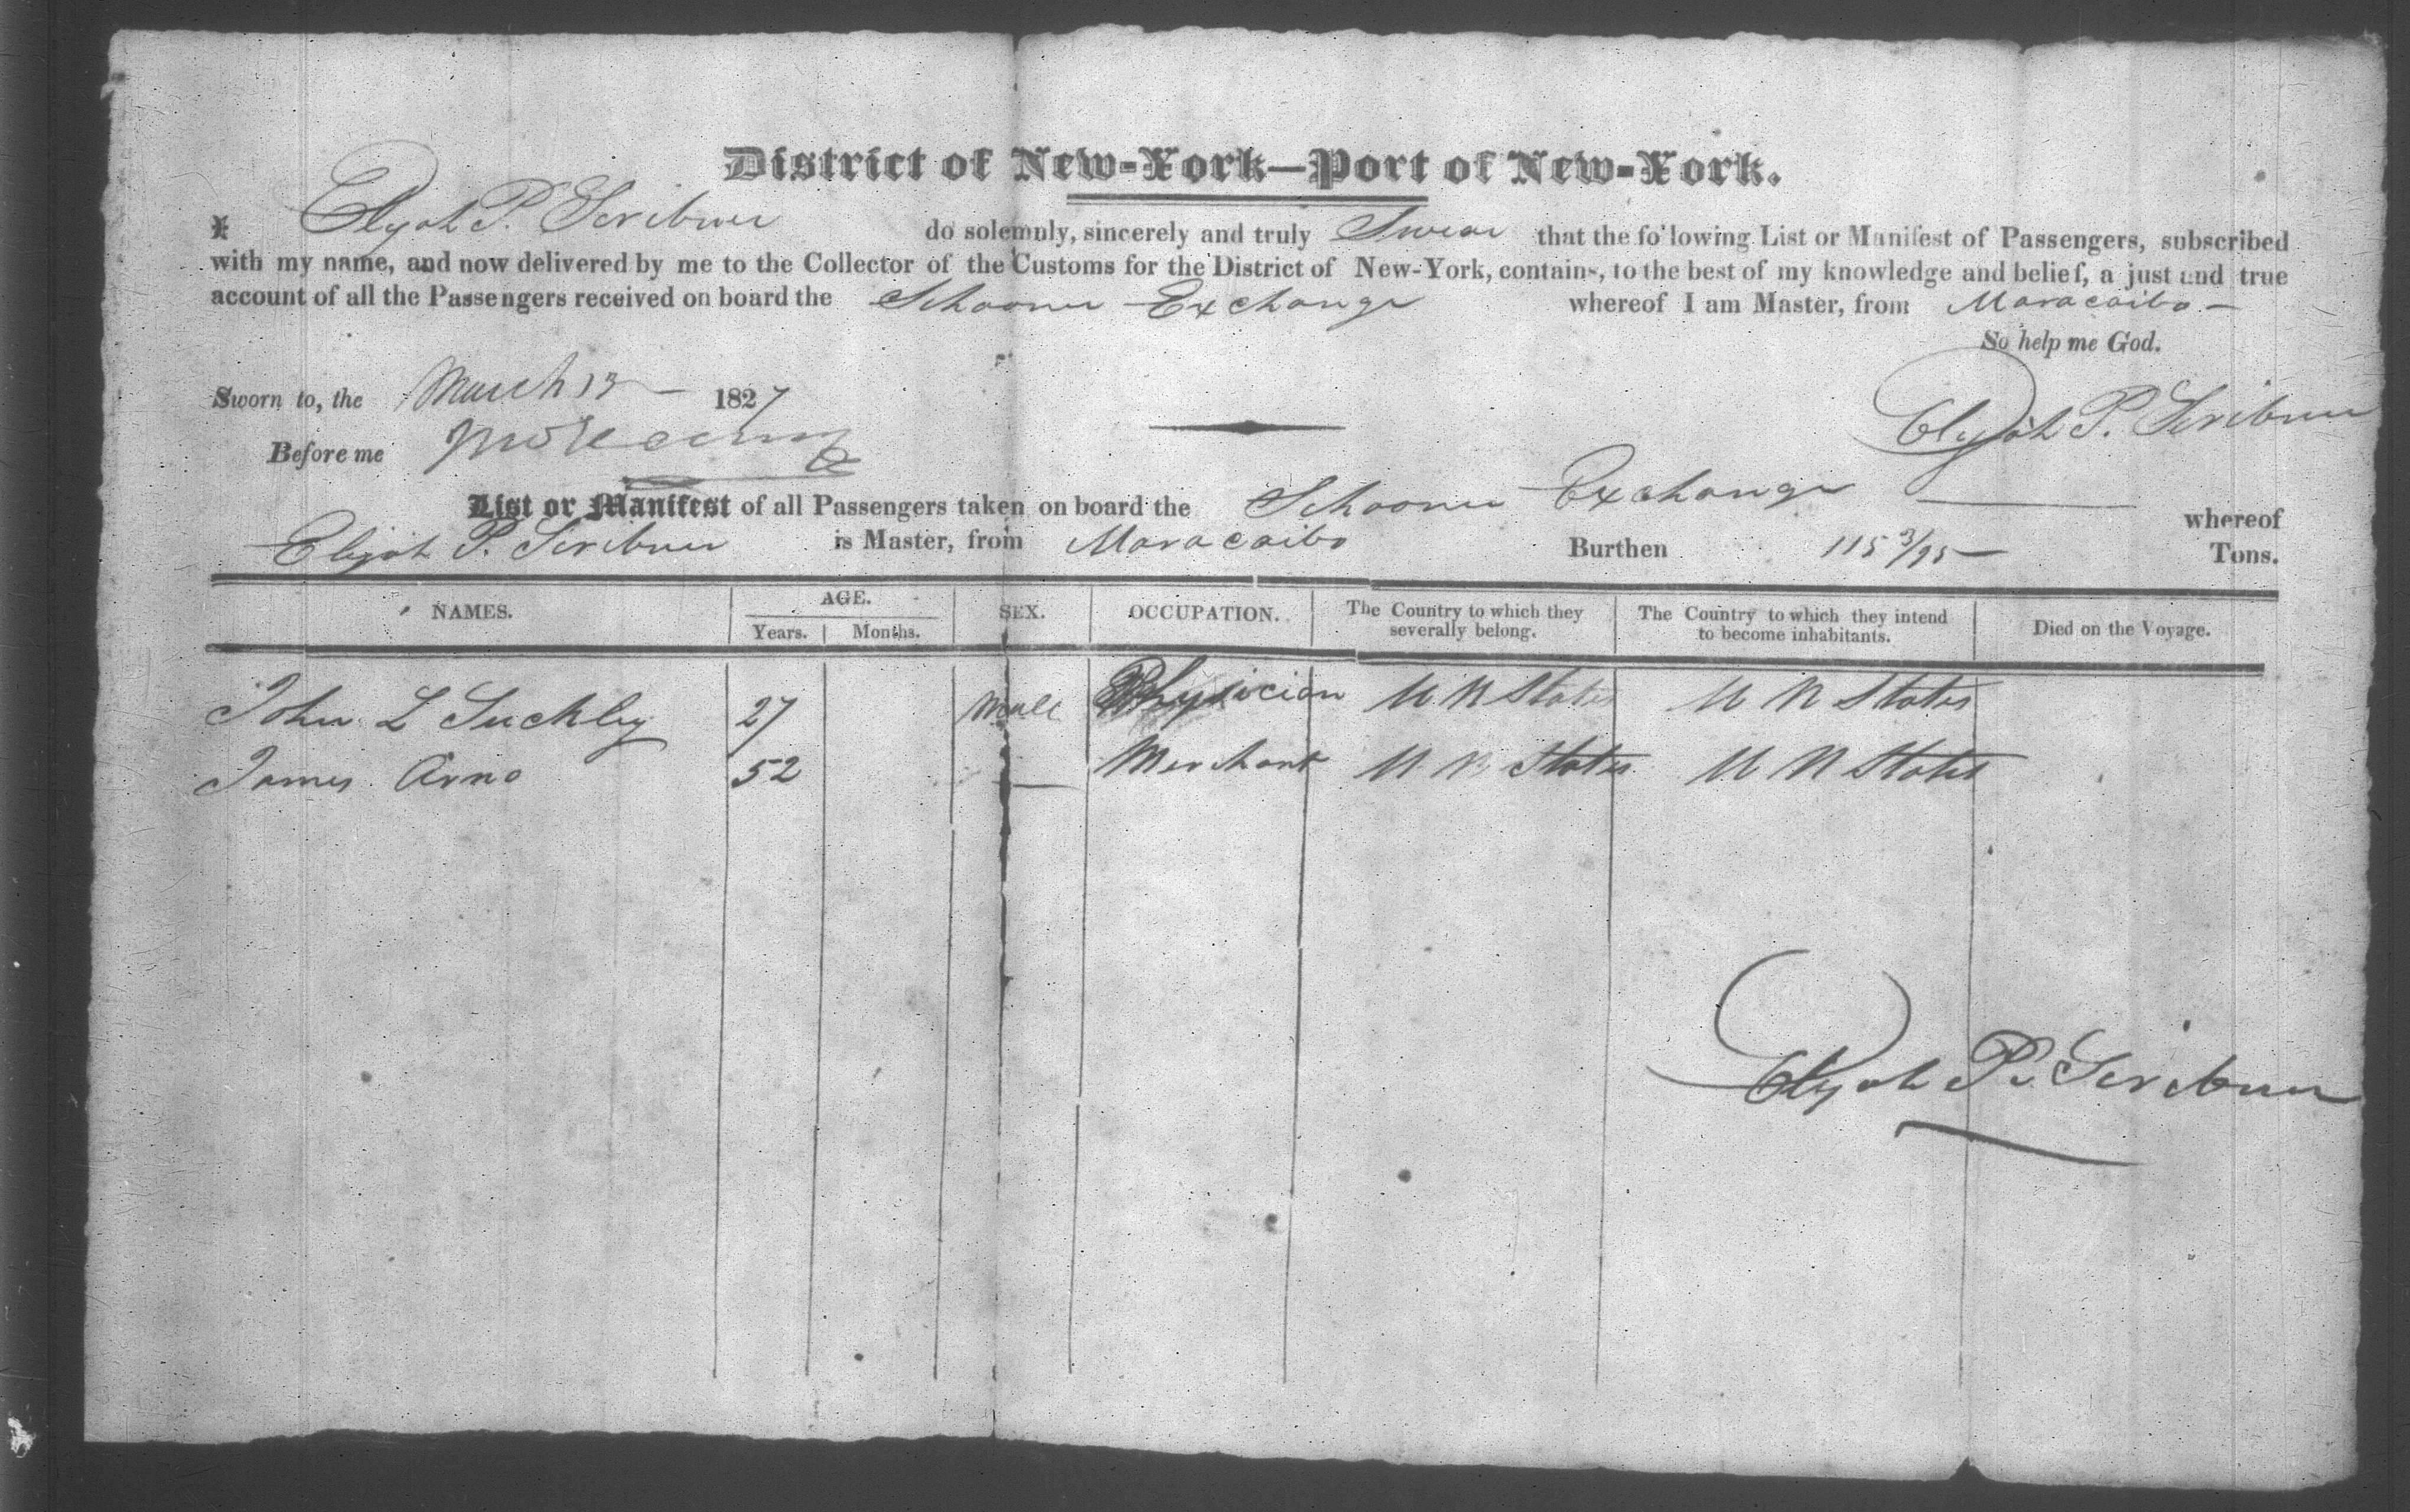 District of New-York—Port of New-York.
I Elijah P. Scribner do solemnly, sincerely and truly Swear that the following List or Manifest of Passengers, subscribed
with my name, and now delivered by me to the Collector of the Customs for the District of New-York, contains, to the best of my knowledge and belief, a just and true
account of all the Passengers received on board the Schooner Exchange whereof I am Master, from Maracaibo —
So help me God.
Sworn to, the March 13 — 1827
Elijah P. Scribner
Before me
List or Manifest of all Passengers taken on board the Schooner Exchange — whereof
Elijah P. Scribner is Master, from Maracaibo Burthen 115 3/95 — Tons.
NAMES. AGE. SEX. OCCUPATION. The Country to which they severally belong. The Country to which they intend to become inhabitants. Died on the Voyage.
Years. Months.
John L Suckley 27 Male Physician U N States U N States
James Arno 52 — Merchant U N States U N States
Elijah P. Scribner